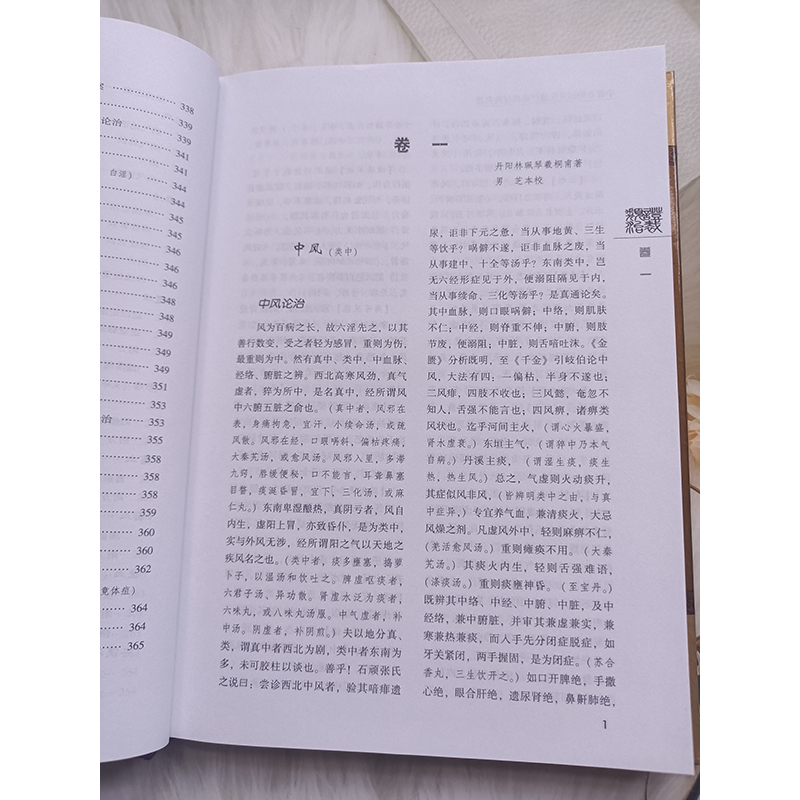 案 338
339
论治 339
341
341
白淫） 344
344
345
346
346
348
348
349
349
351
353
治 353
355
358
358
360
360
362
竟体痘）
364
364
365
卷 一
丹阳林珮琴羲桐甫著
男 芝本校
中风（类中）
中风论治
风为百病之长，故六淫先之，以其
善行数变，受之者轻为感冒，重则为伤，
最重则为中。然有真中、类中，中血脉、
经络、腑脏之辨。西北高寒风劲，真气
虚者，猝为所中，是名真中，经所谓风
中六腑五脏之俞也。（真中者，风邪在
表，身痛拘急，宜汗，小续命汤，或疏
风散。风邪在经，口眼㖞斜，偏枯疼痛，
大秦艽汤，或愈风汤。风邪入里，多滞
九窍，唇缓便秘，口不能言，耳聋鼻塞
目瞀，痰涎昏冒，宜下，三化汤，或麻
仁丸。）东南卑湿酿热，真阴亏者，风自
内生，虚阳上冒，亦致昏仆，是为类中，
实与外风无涉，经所谓阳之气以天地之
疾风名之也。（类中者，痰多壅塞，捣萝
卜子，以温汤和饮吐之。脾虚呕痰者，
六君子汤、异功散。肾虚水泛为痰者，
六味丸，或八味丸汤服。中气虚者，补
中汤。阴虚者，补阴煎。）夫以地分真、
类，谓真中者西北为剧，类中者东南为
多，未可胶柱以谈也。善乎！石顽张氏
之说曰：尝诊西北中风者，验其喑痱遗
尿，讵非下元之惫，当从事地黄、三生
等饮乎？㖞僻不遂，讵非血脉之废，当
从事建中、十全等汤乎？东南类中，岂
无六经形症见于外，便溺阻隔见于内，
当从事续命、三化等汤乎？是真通论矣。
其中血脉，则口眼㖞僻；中络，则肌肤
不仁；中经，则脊重不伸；中腑，则肢
节废，便溺阻；中脏，则舌喑吐沫。《金
匮》分析既明，至《千金》引岐伯论中
风，大法有四；一偏枯，半身不遂也；
二风痱，四肢不收也；三风懿，奄忽不
知人，舌强不能言也；四风痹，诸痹类
风状也。迄乎河间主火，（谓心火暴盛，
肾水虚衰。）东垣主气，（谓猝中乃本气
自病。）丹溪主痰，（谓湿生痰，痰生
热，热生风。）总之，气虚则火动痰升，
其症似风非风，（皆辨明类中之由，与真
中症异，）专宜养气血，兼清痰火，大忌
风燥之剂。凡虚风外中，轻则麻痹不仁，
（羌活愈风汤。）重则瘫痪不用。（大秦
艽汤。）其痰火内生，轻则舌强难语，
（涤痰汤。）重则痰壅神昏。（至宝丹。）
既辨其中络、中经、中腑、中脏，及中
经络，兼中腑脏，并审其兼虚兼实，兼
寒兼热兼痰，而入手先分闭症脱症，如
牙关紧闭，两手握固，是为闭症。（苏合
香丸，三生饮开之。）如口开脾绝，手撒
心绝，眼合肝绝，遗尿肾绝，鼻鼾肺绝，
类证治裁
卷
一
1